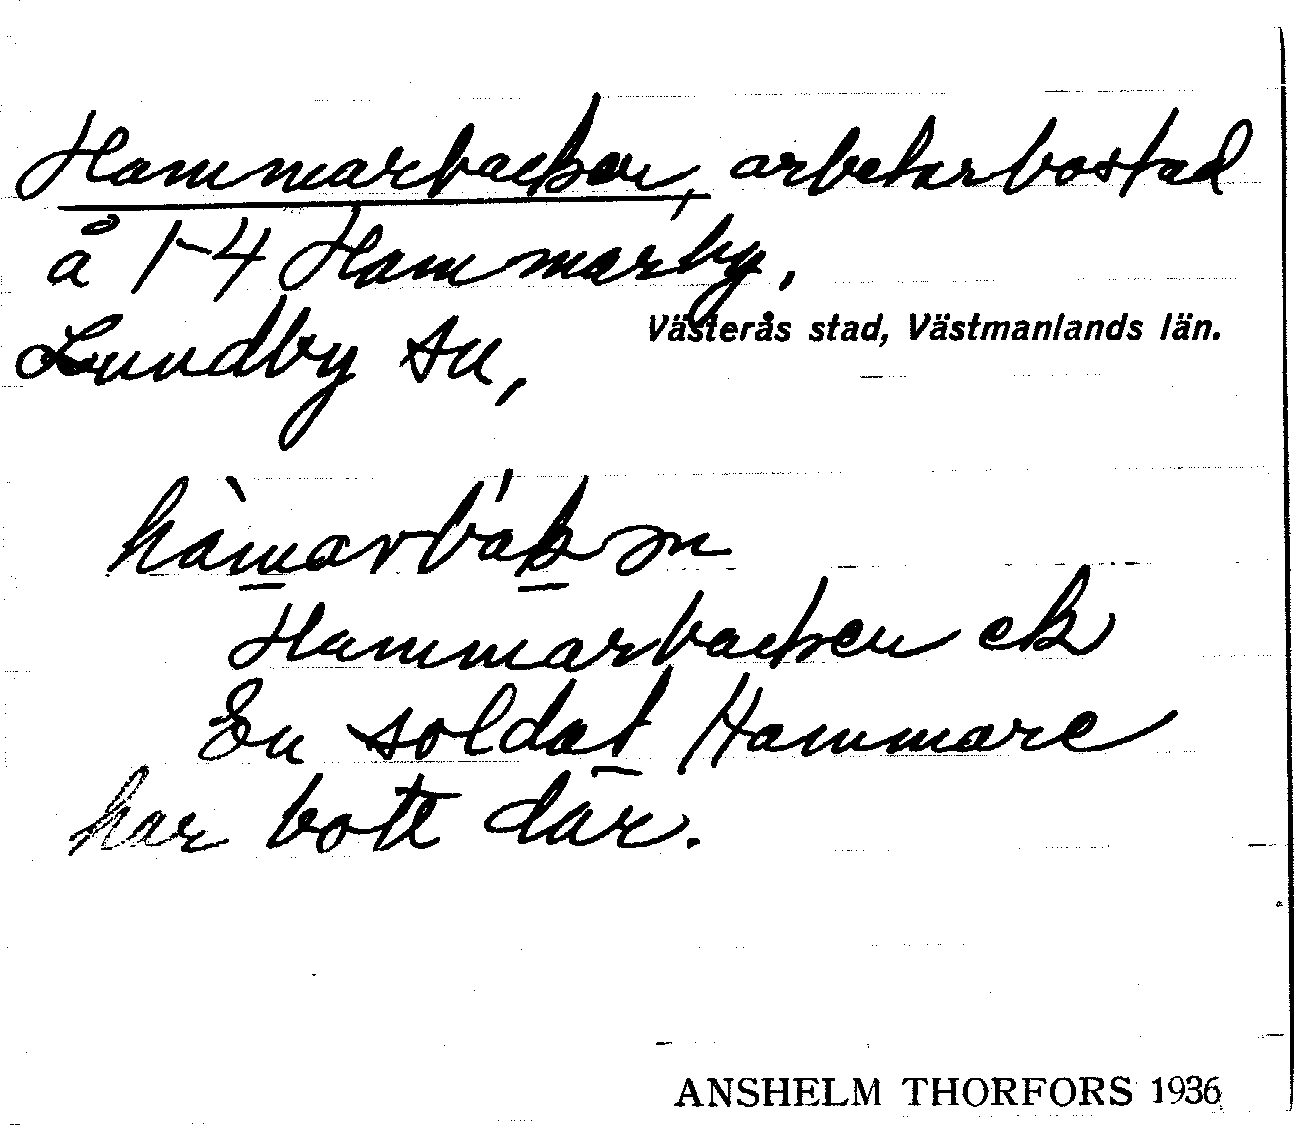 Hammarbacken, arbetarbostad
å 1-4 Hammarby,
Västerås stad, Västmanlands län.
Lundby sn,
hàmarbák̲ən
Hammarbacken ek
En soldat Hammare
har bott där.
ANSHELM THORFORS 1936